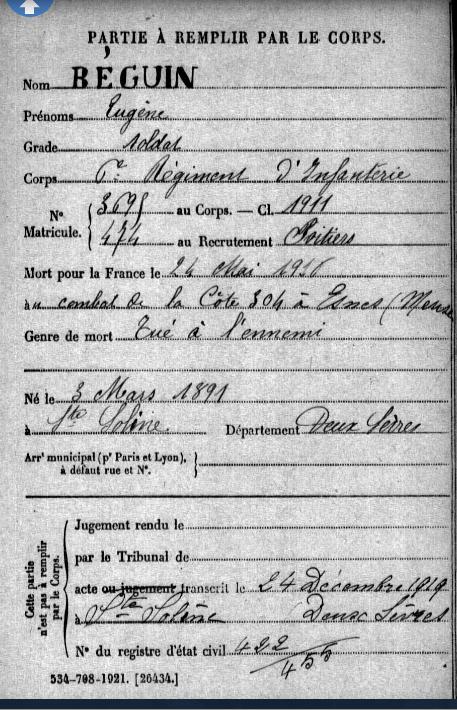 PARTIE À REMPLIR PAR LE CORPS.
Nom BÉGUIN
Prénoms Eugène
Grade soldat
Corps 6e Régiment D'Infanterie
N° Matricule. { 3695 au Corps. — Cl. 1911
474 au Recrutement Poitiers
Mort pour la France le 24 Mai 1916
au combat de la Côte 304 à Esnes (Meuse
Genre de mort Tué à l'ennemi
Né le 3 Mars 1891
à Ste Soline Département Deux Sèvres
Arrt municipal (pr Paris et Lyon), à défaut rue et N°.
Cette partie n'est pas à remplir par le Corps.
Jugement rendu le
par le Tribunal de
acte ou jugement transcrit le 24 Décembre 1919
à Ste Soline Deux Sèvres
N° du registre d'état civil 422/455
534-708-1921. [26434.]